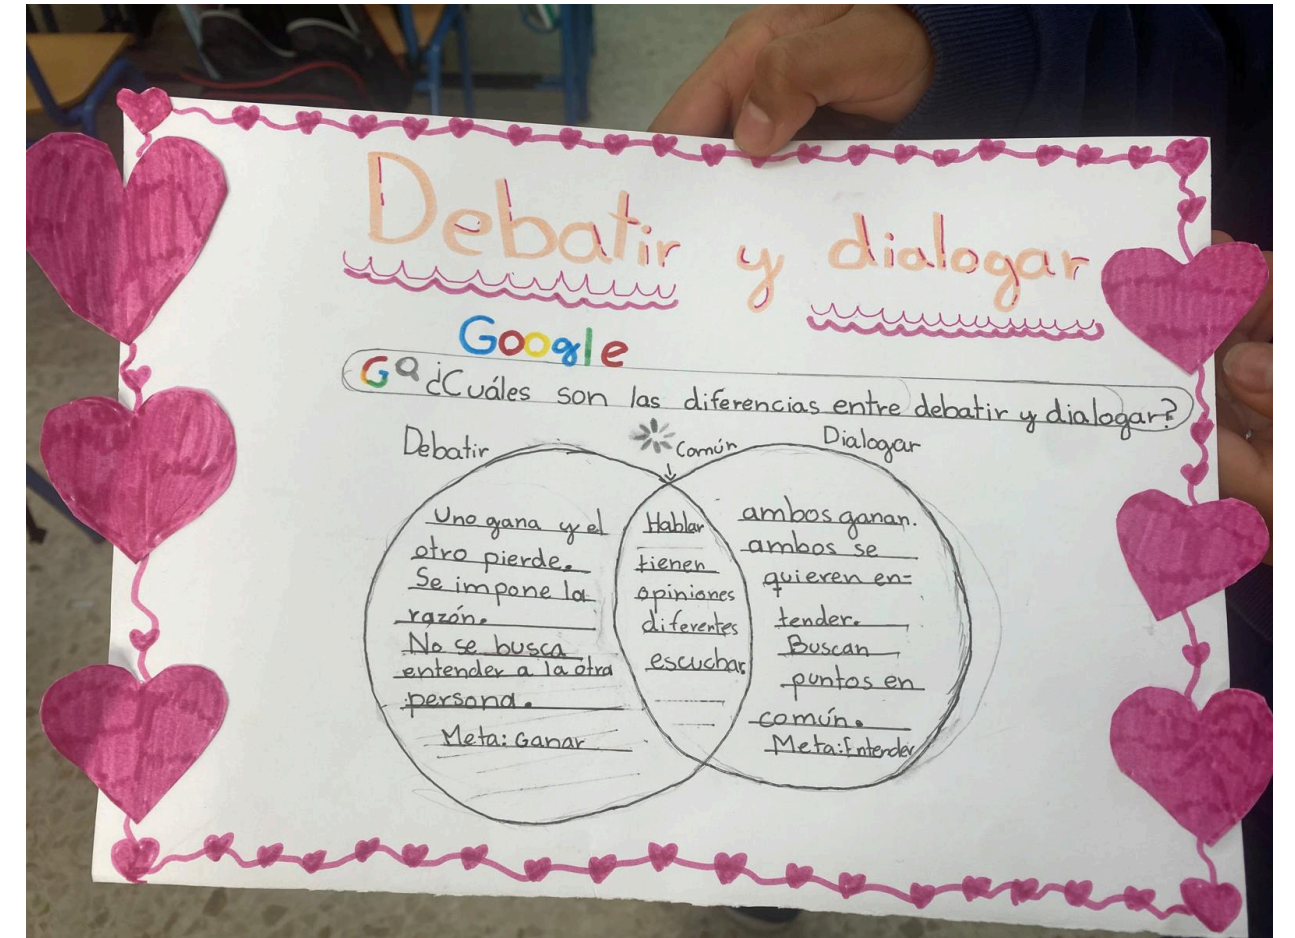 Debatir y dialogar
Google
G ¿Cuáles son las diferencias entre debatir y dialogar?
Debatir
Común
Dialogar
Uno gana y el
otro pierde.
Se impone la
razón.
No se busca
entender a la otra
persona.
Meta: Ganar
Hablar
tienen
opiniones
diferentes
escuchar
ambos ganan.
ambos se
quieren en=
tender.
Buscan
puntos en
común.
Meta: Entender